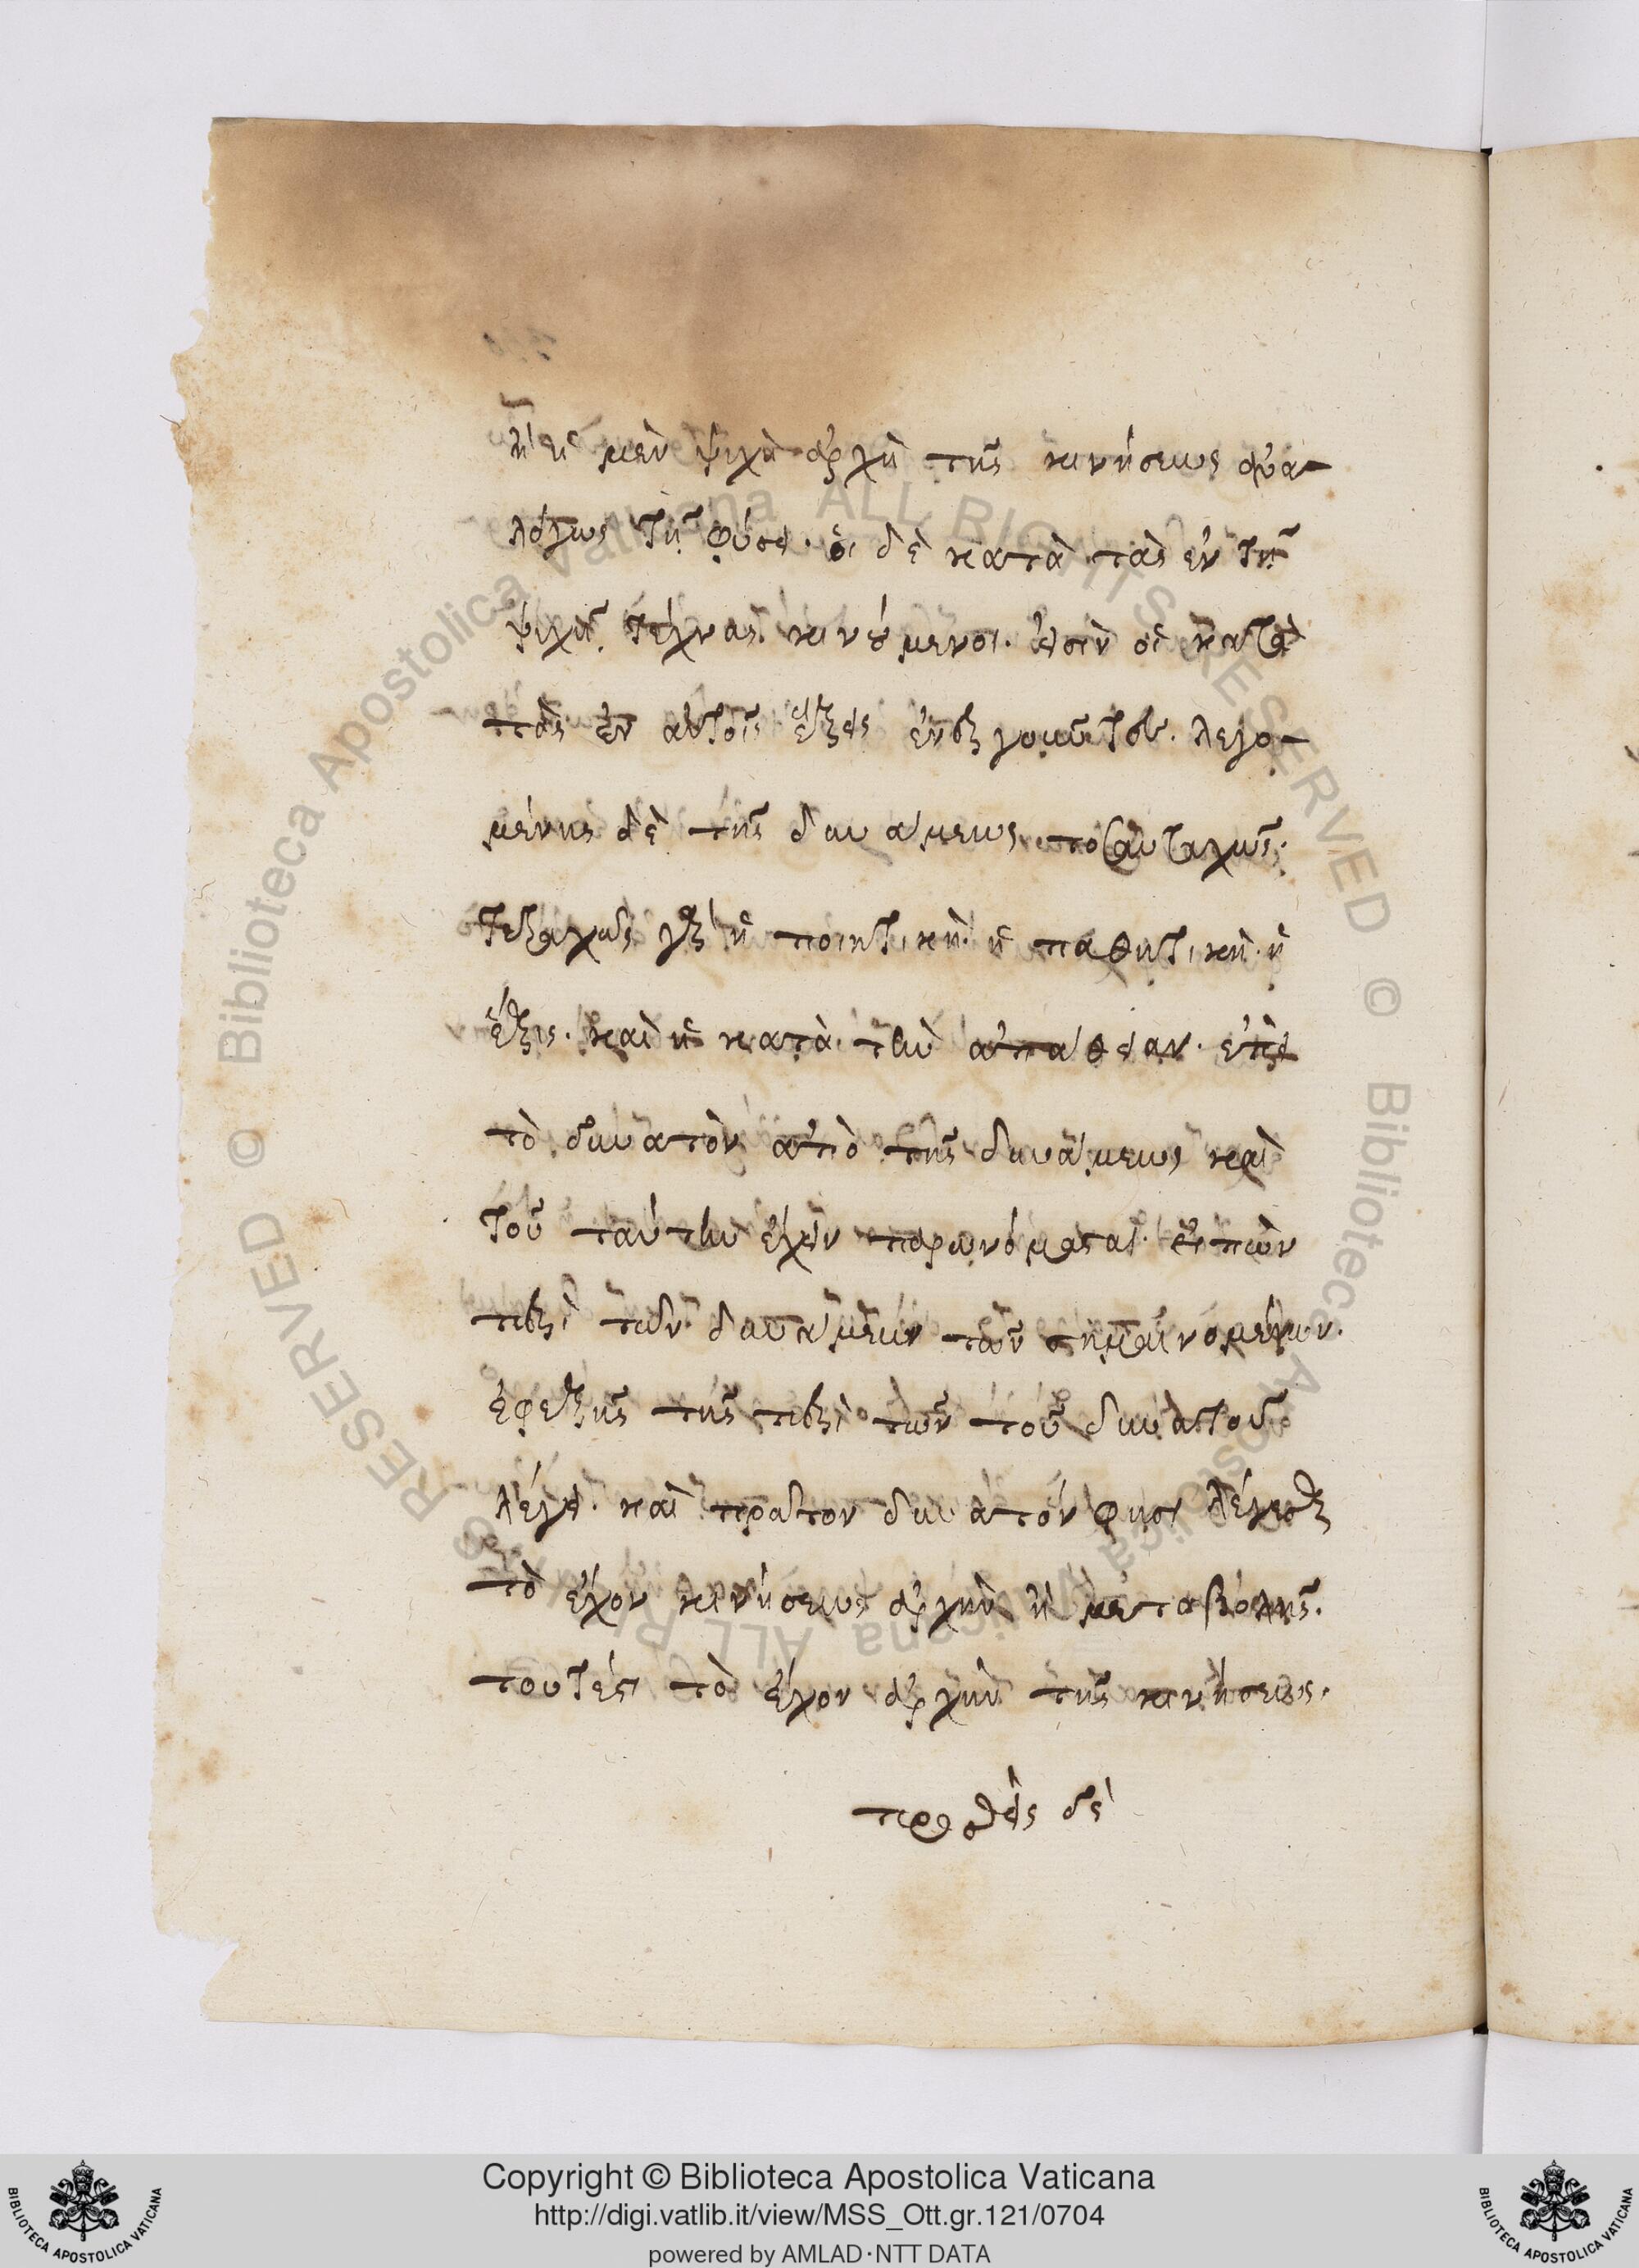 ἡ μὲν ψυχὴ ἀρχὴ τῆς κινήσεως ἀνα-
λόγως τῇ φύσει. οἱ δὲ κατὰ τὰς ἐν τῇ
ψυχῇ τέχνας κινούμενοι. εἰσὶν οἱ κατὰ
τὰς ἐν αὐτοῖς ἕξεις λεγο-
μένης δὲ τῆς δυνάμεως τοσαυταχῶς.
τετραχῶς γὰρ ἢ ποιητικὴ. ἢ παθητικὴ. ἢ
ἕξις. καὶ ἡ κατὰ τὴν ἀπάθειαν. ἐπεὶ
τὸ δυνατὸν ἀπὸ τῆς δυνάμεως καὶ
τοῦ ταύτην ἔχειν παρωνόμασται. εἰπὼν
περὶ τῶν δυνάμεων τῶν σημαινομένων.
ἐφεξῆς τῆς περὶ τῶν τοῦ δυνατοῦ
λέγει. καὶ πρῶτον δυνατόν φησι λέγεσθαι
τὸ ἔχον κινήσεως ἀρχὴν ἢ μεταβολῆς.
τουτέστι τὸ ἔχον ἀρχὴν τῆς κινήσεως.
προσθεὶς δὲ
Copyright © Biblioteca Apostolica Vaticana
http://digi.vatlib.it/view/MSS_Ott.gr.121/0704
powered by AMLAD·NTT DATA
BIBLIOTECA APOSTOLICA VATICANA
BIBLIOTECA APOSTOLICA VATICANA
© Biblioteca Apostolica Vaticana ALL RIGHTS RESERVED
© Biblioteca Apostolica Vaticana ALL RIGHTS RESERVED